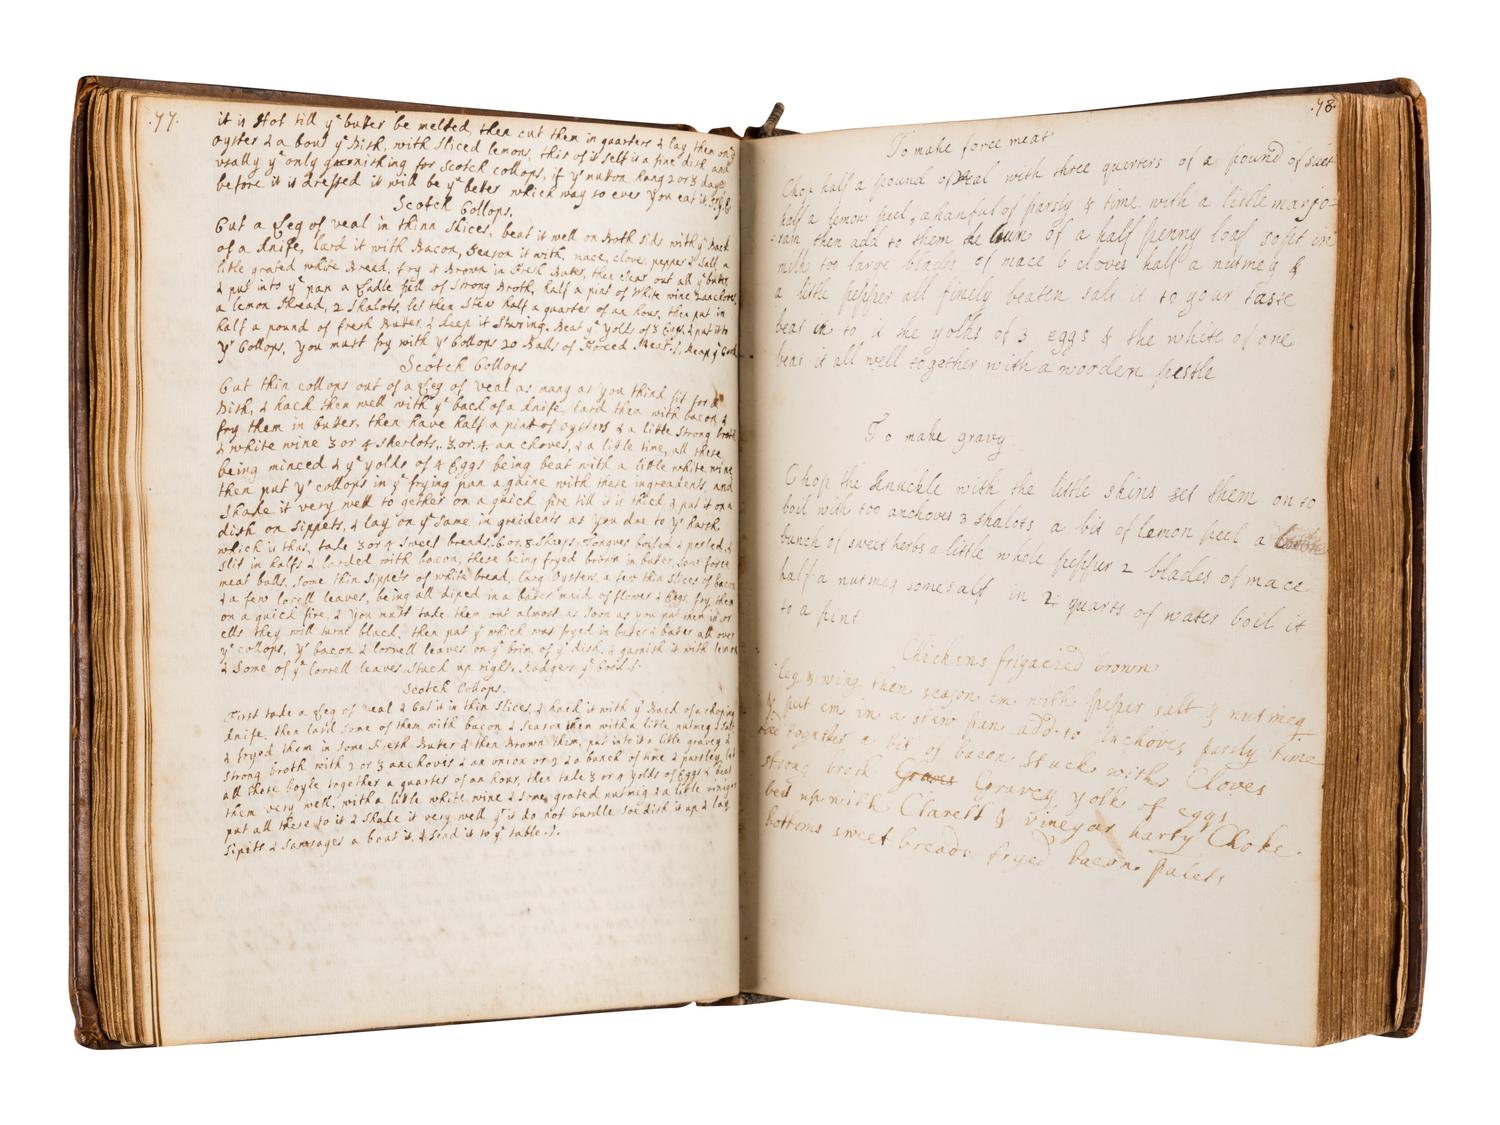 .77.
it is Hot till yᵉ buter be melted, then cut them in quarters & lay them on yᵉ
oyster & a bout yᵉ Dish, with sliced lemons, this of it self is a fine dish and
usally yᵉ only garnishing for Scotch collops, if yᵉ muton hang 2 or 3 days
before it is dressed it will be yᵉ beter which way so ever you eat it.
Scotch Collops.
Cut a Leg of veal in thinn slices, beat it well on Both sids with yᵉ Back
of a knife, lard it with Bacon, Season it with, mace, cloves, pepper & Salt, a
litle grated white Bread, fry it Brown in Fresh Buter, then clear out all yᵉ buter
& put into yᵉ pan a Ladle full of Strong Broth, half a pint of White wine 2 anchoves,
a lemon Shread, 2 Shalots, let then Stew half a quarter of an hour, then put in
half a pound of fresh Buter, & keep it Sturing. Beat yᵉ Yolds of 3 Egs, & put into
yᵉ Collops, You must fry with yᵉ Collops 20 Balls of Forced Meat.
Scotch Collops
Cut thin collops out of a Leg of veal as many as you think fit for a
Dish, & hack them well with yᵉ back of a knife, lard them with bacon, &
fry them in buter, then have half a pint of oysters & a little strong broth
& white wine 3 or 4 Sherlots, 3. or. 4. an choves, & a little time, all these
being minced & yᵉ yolds of 4 Eggs being beat with a little white wine
then put yᵉ collops in yᵉ frying pan a gaine with these ingreadents, and
Shake it very well to gether on a quick fire till it is thick & put it on a
dish on sippets, & lay on yᵉ same in greidents as you due to yᵉ harsh
which is this, take 3 or 4 sweet breads. 6 or. 8 Sheeps Tongues boiled & peeled, &
slit in halfs & larded with bacon, these being fryed brown in buter, som force
meat balls, some thin sippets of white bread, larg Oysters, a few thin slices of bacon
& a few sorell leaves, being all diped in a bater maid of flower & Eggs fry them
on a quick fire, & you must take them out almost as soon as you put them in or
ells they will turnt black, then put yᵉ which was fryed in buter & bater all over
yᵉ collops, yᵉ bacon & sorrell leaves on yᵉ brim of yᵉ dish, & garnish it with lemon
& some of yᵉ sorrell leaves stuck up right,
Scotch Collops.
First take a Leg of veal & Cut it in thin slices, & hack it with yᵉ Back of a choping
knife, then lard some of them with bacon & season them with a little nutmeg & salt
& fryed them in some Fresh Buter & then Brown them, put into it a little gravey &
strong broth with 2 or 3 anchoves & an onion or 2 & a bunch of time & parsley, let
all these boyle together a quarter of an hour, then take 3 or 4 yolds of Eggs & beat
them very well, with a little white wine & some grated nutmeg & a little viniger
put all these to it & shake it very well yᵗ it do not burdle soe dish it up & lay
sipits & Sausages a bout it, & send it to yᵉ table.
.78.
To make force meat
Chop half a pound of Veal with three quarters of a pound of suet
half a lemon peel, a hanful of parsly & time with a little marjo=
=ram then add to them the of a half penny loaf sopt in
milk too large blades of mace 6 cloves half a nutmeg &
a little pepper all finely beaten salt it to your taste
beat in to it the yolks of 3 eggs & the white of one
beat it all well together with a wooden pestle
To make gravy
Chop the knuckle with the little skins set them on to
boil with too anchoves 3 shalots a bit of lemon peel a
bunch of sweet herbs a little whole pepper 2 blades of mace
half a nutmeg some salt in 2 quarts of water boil it
to a pint
Chickins frigacied brown
leg & wing then season em with peper salt & nutmeg
& put em in a stew pan add to Anchoves parsly time
together a bit of bacon stuck with Cloves
strong broth Graves Gravey yolk of eggs
beet up with Clarett & vinegar harty Choke
bottoms sweet breads fryed bacon palets